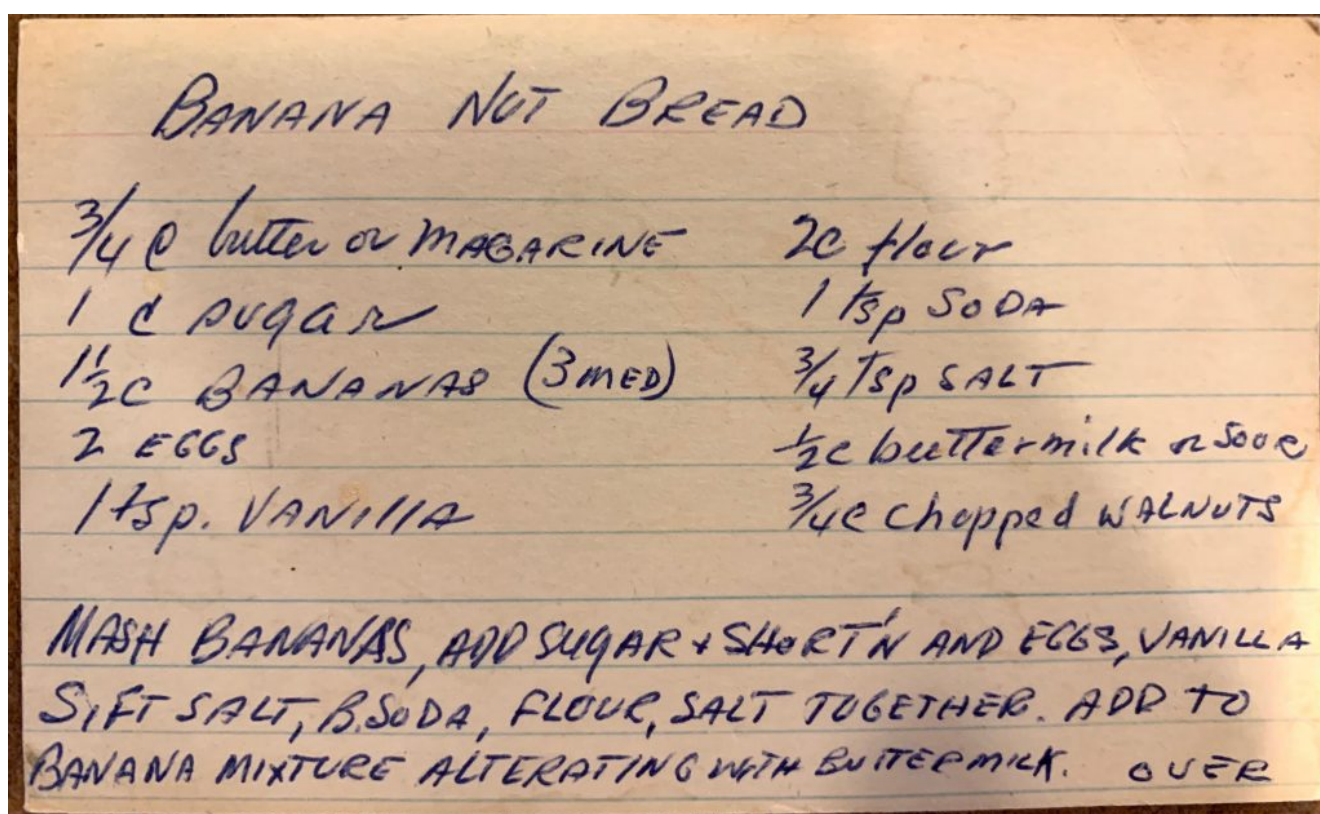 BANANA NUT BREAD
3/4 c butter or MAGARINE
1 c sugar
1 1/2 c BANANAS (3 MED)
2 EGGS
1 tsp. VANILLA
2c flour
1 tsp SODA
3/4 Tsp SALT
1/2 c buttermilk or SOUR
3/4 c chopped WALNUTS
MASH BANANAS, ADD SUGAR + SHORT'N AND EGGS, VANILLA
SIFT SALT, B.SODA, FLOUR, SALT TOGETHER. ADD TO
BANANA MIXTURE ALTERATING WITH BUTTERMILK. OVER